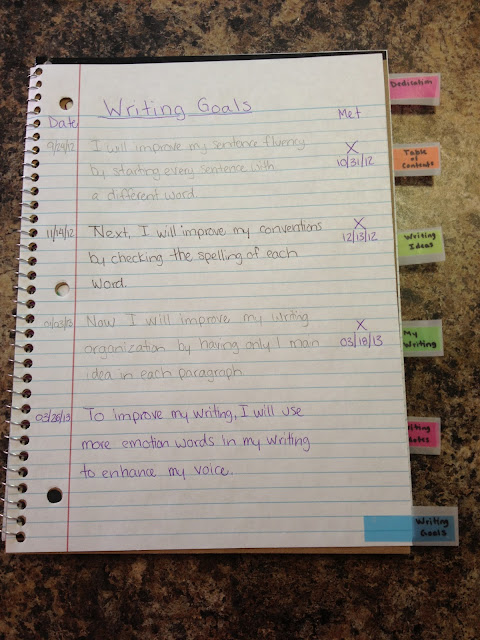 Writing Goals
Date
Met
9/24/12
I will improve my sentence fluency
by starting every sentence with
a different word.
X
10/31/12
11/14/12
Next, I will improve my conventions
by checking the spelling of each
word.
X
12/13/12
01/03/13
Now I will improve my writing
organization by having only 1 main
idea in each paragraph.
X
03/18/13
03/26/13
To improve my writing, I will use
more emotion words in my writing
to enhance my voice.
Dedication
Table
of
Contents
Writing
Ideas
My
Writing
Writing
Goals